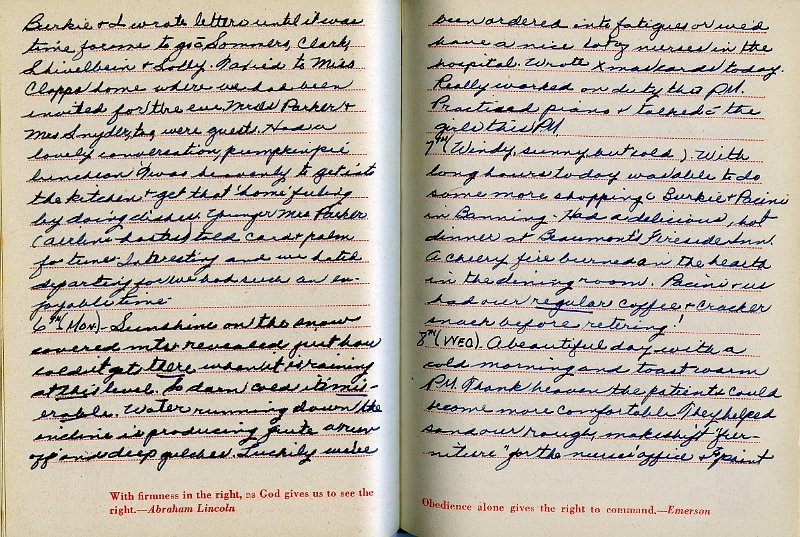 Burkie & I wrote letters until it was
time for me to go c̄ Sommers, Clark,
Shivelbein & Lolly. Taxied to Miss
Clapps home where we had been
invited for the eve. Mrs Parker &
Mrs. Snyder, too, were guests. Had a
lovely conversation, pumpkin pie
luncheon. 'Twas heavenly to get into
the kitchen & get that 'home' feeling
by doing dishes. Younger Miss Parker
(airline hostess) read cards & palm
for time. Interesting and we hated
departing for we had such an en-
joyable time.
6TH (MON)- Sunshine on the snow
covered mts revealed just how
cold it gets there when it is raining
at this level. So darn cold it is mis-
erable. Water running down the
incline is producing quite a run
off and deep gulches. Luckily we've
With firmness in the right, as God gives us to see the
right.—Abraham Lincoln
been ordered into fatigues or we'd
have a nice lot of nurses in the
hospital. Wrote Xmas cards today.
Really worked on duty this P.M.
Practised piano & talked c̄ the
girls this P.M.
7TH (Windy, sunny, but cold). With
long hours today was able to do
some more shopping c̄ Burkie & Pacini
in Banning. Had a delicious, hot
dinner at Beaumont's Fireside Inn.
A cheery fire burned on the hearth
in the dining room. Pacini & us
had our regular coffee & cracker
snack before retiring!
8TH (WED). A beautiful day with a
cold morning and toast warm
P.M. Thank heaven the patients could
become more comfortable. They helped
sand our rough, makeshift "fur-
niture" for the nurses office & I paint
Obedience alone gives the right to command.—Emerson